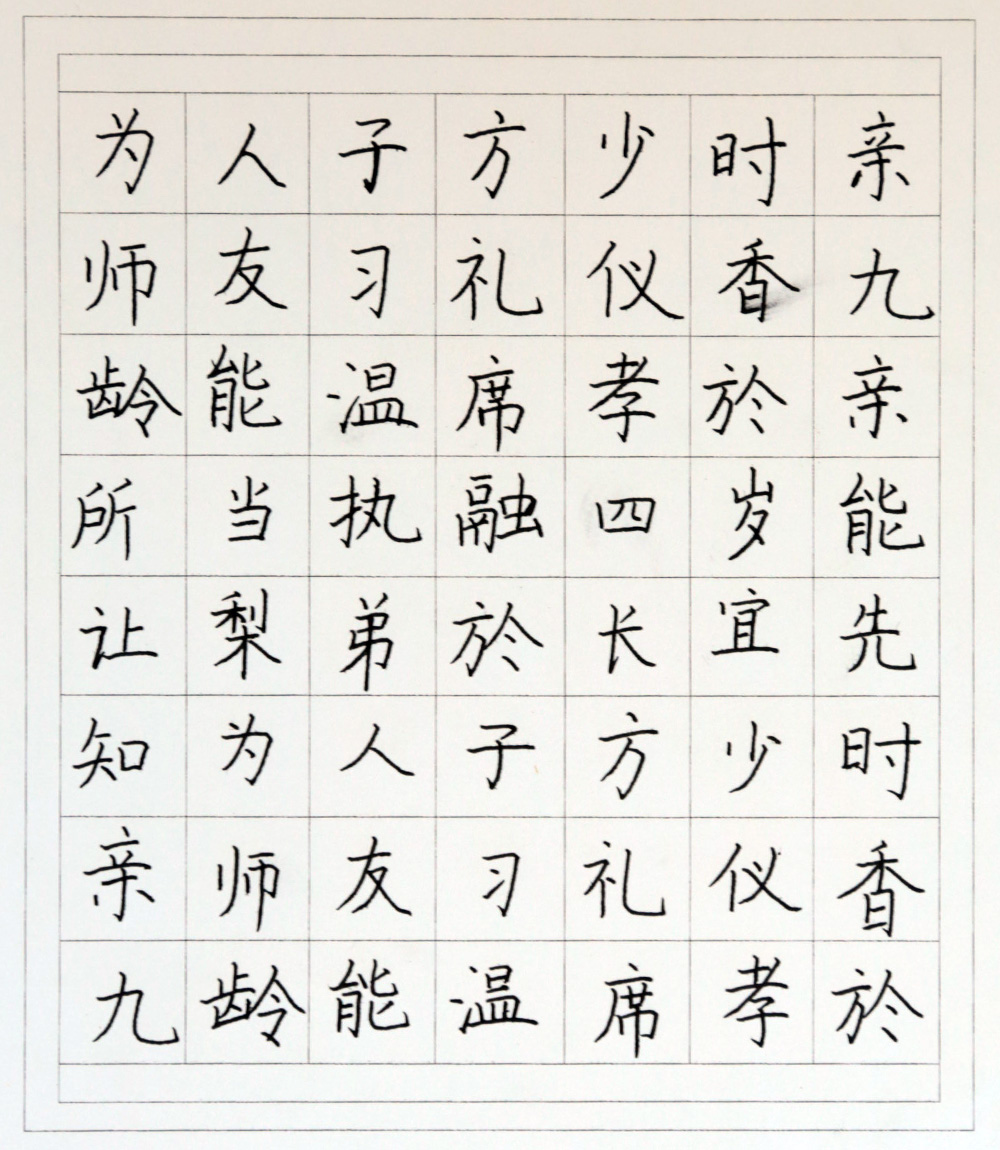 为人子方少时亲
师友习礼仪香九
龄能温席孝於亲
所当执融四岁能
让梨弟於长宜先
知为人子方少时
亲师友习礼仪香
九龄能温席孝於